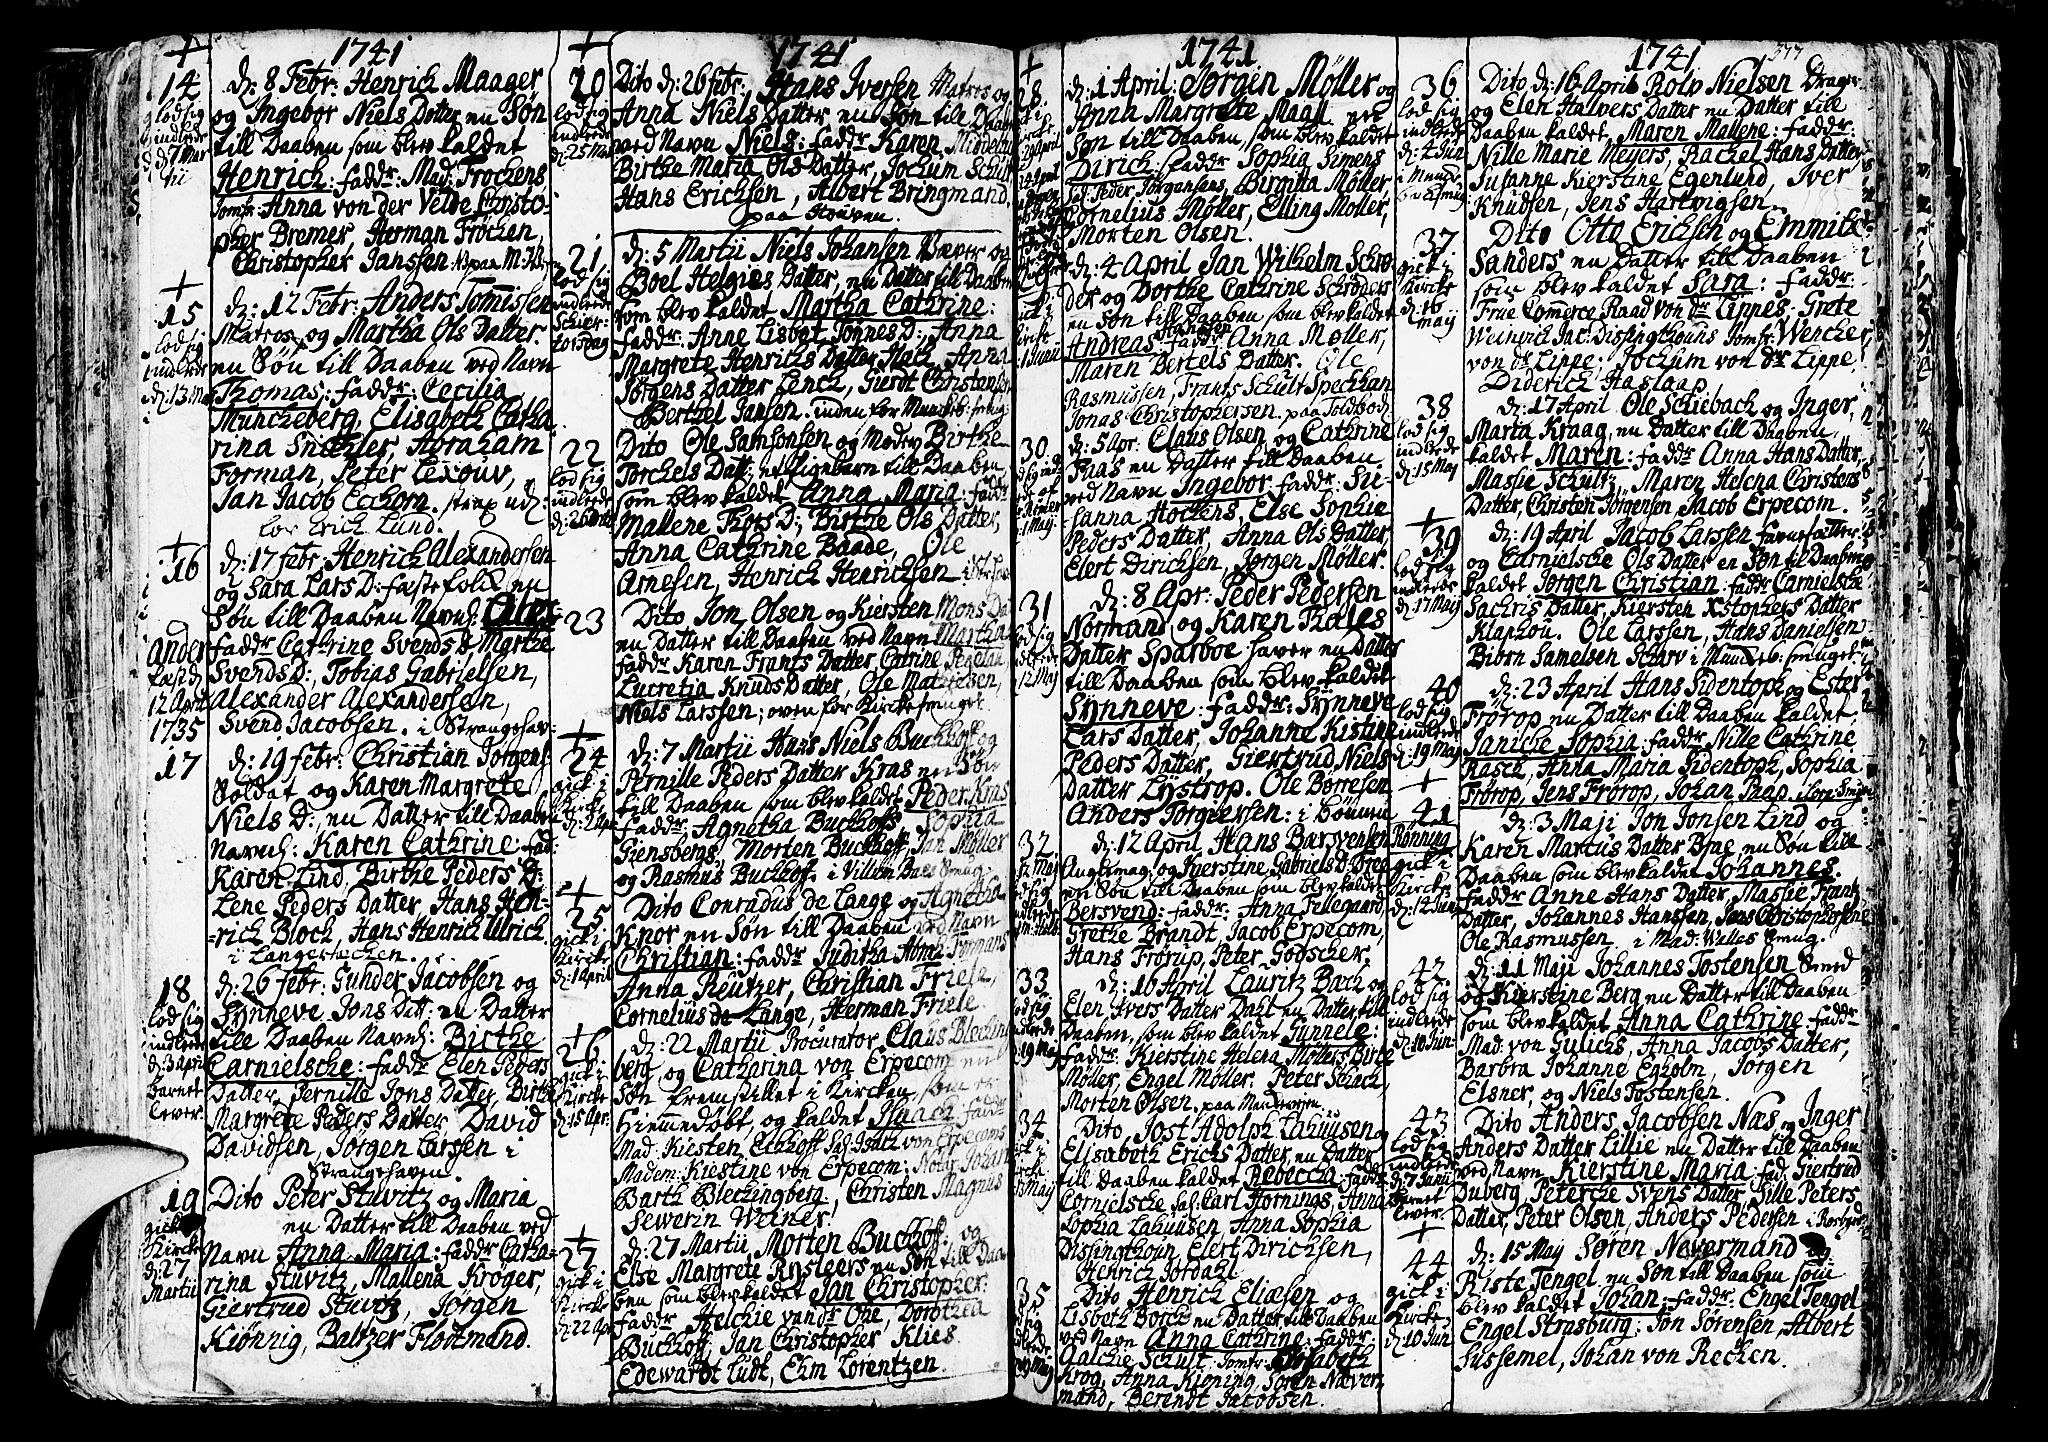 1741
14
lod sig
indlede
d: 7 Mar
tii
d: 8 Febr: Henrich Maager,
og Ingebor Niels Datter en Søn
till Daaben som blev kaldet
Henrich: faddr: Mad: Frochens
Jomfr: Anna von der Velde Christo-
pher Bremer, Herman Frochen,
Christopher Janssen
15
lod sig
indlede
d: 13 Mar
d: 12 Febr: Anders Tomissen
Matros og Martha Ols Datter
en Søn till Daaben ved Navn
Thomas: faddr: Cecilia
Munckeberg, Elisabeth Catha
rina Snichler, Abraham
Forman, Peter Lexouv,
Jan Jacob Eckhorn. strax ud
for Erich Lund.
16
d: 17 febr: Henrich Alexandersen
og Sara Lars D: fæstefolk en
Søn till Daaben Navnl:
faddr Cathrine Svends D Marthe
Svends D: Tobias Gabrielsen,
Alexander Alexandersen,
Svend Jacobsen. i Strangehav
12 April
1735
17
d: 19 febr: Christian Jørgens
Soldat og Karen Margrete
Niels D: en Datter till Daaben
Navnl: Karen Cathrine: fad:
Karen Lind, Birthe Peders D:
Lene Peders Datter, Hans Hen-
rich Block, Hans Henrich Ulrich.
i Langestecken.
18
lod sig
indlede
d: 3 april
barnet
lever.
d: 26 febr: Gunder Jacobsen og
Synneve Jons Datt: en Datter
till Daaben Navnl: Birthe
Carnielsche: faddr Elen Peders
Datter, Pernille Jons Datter, Birthe
Margrete Peders Datter, David
Davidsen, Jørgen Larsen i
Strangehaven.
19
gick i
Kircke
d: 27
Martii
Dito Peter Stuvitz og Maria
en Datter till Daaben ved
Navn Anna Maria: faddr Catha-
rina Stuvitz, Mallena Krøger,
Giertrud Stuvitz, Jørgen
Kiønnig, Baltzer Flodtmand.
1741
20
lod sig
indlede
d: 25 Mar
Dito d: 26 febr: Hans Iversen Matros og
Anna Niels Datter en Søn til Daaben
ved Navn Niels: faddr: Karen
Birthe Maria Ols Datter, Jochum Schult
Hans Erichsen, Albert Bringmand.
paa Stouven.
21
lod sig
indlede
Schier-
torsdag
d: 5 Martii Niels Johansen Væver og
Boel Helgies Datter, en Datter till Daaben
som blev kaldet Martha Cathrine:
faddr: Anne Lisbet Tønnes D: Anna
Margrete Henrichs Datter, Anna
Jørgens Datter Lench, Gierdt Christensen
Berthel Jansen. inden for smug:
22
lod sig
indlede
Dito Ole Samsonsen og Medev Birthe
Torchels Datt: et Pigebarn till Daaben
som blev kaldet Anna Maria: faddr
Mallene Thors D: Birthe Ols Datter,
Anna Cathrine Baade, Ole
Arnesen, Henrich Henrichsen
23
Dito Jon Olsen og Kiersten Mons Dat
en Datter till Daaben ved Navn Martha
faddr Karen Frants Datter, Catrine
Lucretia Knuds Datter, Ole Mathiesen,
Niels Larssen; oven for Kirche smuget.
24
gick i
Kircke
d: 7 Martii Hans Niels Buchhoff og
Pernille Peders Datter Kras en Søn
till Daaben som blev kaldet Peder Kras
faddr: Agnetha Buchhoffs, Sophia
Giensbergs, Morten Buchhoff, Jan Møller
og Rasmus Buchhof.
25
gick i
Kircke
d: 1 april
Dito Conradus de Lange og Agnetha
Knor en Søn till Daaben ved Navn
Christian: faddr Juditha
Anna Reutzer, Christian Friele,
Cornelius de Lange, Herman Friele.
26
gick i
Kircke
d: 15 Apr.
d: 22 Martii Procurator Claus Blechin
berg og Catharina von Erpecom en
Søn fremstillet i Kircken, som er
Hiemmedøbt, og kaldet Isaach faddr
Mad: Kiersten Eichhoff Sal: Isach von Erpecoms
Madem: Kiestine von Erpecom: Notar Johan
Barth Bleckingberg, Christen Magnus
Sewerin Weiner.
27
gick i
Kircke
d: 22 Apr
d: 27 Martii Morten Buchhof og
Else Margrete Rysleers en Søn till Daa
ben som blev kaldet Jan Christopher:
faddr Helchie vander Ohe, Dorothea
Buchhoff, Jan Christopher Klies
Edewardt Ludt, Elm Lorentzen.
1741
28
d: 1 April: Jørgen Møller og
Anna Margrete Maall en
Søn till Daaben, som blev kaldet
Dirich: faddr Sophia Simens
Sal: Peder Jørgensens, Birgitta Møller,
Cornelius Møller, Elling Møller,
Morten Olsen.
d: 4 April Jan Wilhelm Schrø
der og Dorthe Cathrine Schrøders
en Søn till Daaben som blev kaldet
Andreas Hansen faddr: Anna Møller,
Maren Bertels Datter. Ole
Rasmussen, Frants Schult Speckhan
Jonas Christophersen. paa Toldbod
30
d: 5 Apr. Claus Olsen og Cathrine
Pnas en Datter till Daaben
ved Navn Ingebor faddr: Su-
sanna Hockens, Else Sophie
Peders Datter, Anna Ols Datter,
Elert Dirichsen, Jørgen Møller.
31
lod sig
indlede
12 Maj
d: 8 Apr: Peder Pedersen
Normand og Karen Thales
Datter Sparboe haver en Datter
till Daaben som blev kaldet
Synneve: faddr: Synneve
Lars Datter, Johanne Kistine
Peders Datter, Giertrud Niels
Datter Lystrop. Ole Børresen
Anders Torgiersen: i Bømme
32
d: 12 April Hans Barsvensen
Anglemag. og Kierstine Gabriels D: Bree
en Søn till Daaben som blev kaldet
Bersvend: faddr: Anna Fellegaard,
Grethe Brandt, Jacob Erpecom,
Hans Frørup, Peter Godscher.
33
lod sig
indlede
19 Maj
d: 16 April Lauritz Bach og
Elen Ivers Datter Dahl en Datter till
Daaben, som blev kaldet Gunnele:
faddr: Kierstine Helena Møllers Birte
Møller, Engel Møller. Peter Schach,
Morten Olsen. paa
34
gick i
Kircke
Maij
Dito Jost Adolph Lahuusen og
Elisabeth Erichs Datter, en Datter
till Daaben kaldet Rebecca: faddr
Cornielsche sal: Carl Hornings, Anna
Sophia Lahuusen, Anna Sophia
Dissingthoun, Elert Dirichsen,
Henrich Jordahl.
35
Dito Henrich Eliæsen og
Lisbeth Borch en Datter till Daaben
ved Navn Anna Cathrine: faddr:
Aalchie Schult, Jomfr: Elisabeth
Krog, Anna Kioning, Søren Never-
mand, Berendt Jacobsen.
1741
377
36
lod sig
indlede
d: 4 Jun
Dito d: 16 April Rolv Nielsen Drager
og Elen Halvers Datter en Datter till
Daaben kaldet Maren Mallene: faddr:
Nille Marie Meyers, Rachel Hans Datter
Susanne Kierstine Egenlund, Iver
Knudsen, Jens Hartvigsen.
37
gick i
Kircke
d: 16
maij
Dito Otto Erichsen og Emmicke
Sanders en Datter till Daaben
som blev kaldet Sara: faddr:
Frue Comerce Raad von dr Lippes, Grete
Weinvich Jac: Dissingthouns Jomfr: Wencke
von dr Lippe; Jochum von dr Lippe,
Diderich Haslaap.
38
lod sig
indlede
d: 15 Maj
d: 17 April Ole Schiebach og Inger
Marta Kraag, en Datter till Daaben
kaldet Maren: faddr Anna Hans Datter,
Masie Schultz, Maren Helena Christens
Datter, Christen Jørgensen, Jacob Erpecom.
39
lod sig
indlede
d: 17 Maij
d: 19 April Jacob Larssen farvefatter
og Carnielsche Ols Datter en Søn til Daaben
kaldet Jørgen Christian: faddr: Carnielsche
Sachris Datter, Kiersten Xstophers Datter
Klaphou. Ole Larssen, Hans Danielsen
Biørn Samelsen
40
lod sig
indlede
d: 19 Maj
d: 23 April Hans Sidentoph og Ester
Frørop en Datter till Daaben kaldet
Janiche Sophia: faddr: Nille Cathrine
Rasch, Anna Maria Sidentoph, Sophia
Frørop, Jens Frørop, Johan Thap
41
Rønning
gick i
Kircke
d: 12 Juni
d: 3 Maji Jon Jonsen Lind og
Karen Martus Datter Brae en Søn till
Daaben som blev kaldet Johannes.
faddr Anne Hans Datter, Masie Frantz
Datter, Johannes Hanssen, Jens Christophersen
Ole Rasmussen. i Mad: Welles Smug.
42
lod sig
indlede
d: 10 Jun:
d: 11 Maji Johannes Tostensen Smed
og Kierstine Berg en Datter till Daaben
som blev kaldet Anna Cathrine: faddr
Mad: von Gulichs, Anna Jacobs Datter,
Barbra Johanne Egholm, Jørgen
Elsner, og Niels Tostensen.
43
lod sig
indlede
d: 7 Junii
barnet
lever.
Dito Anders Jacobsen Næs og Inger
Anders Datter Lillie en Datter till Daaben
ved Navn Kierstine Maria: fad: Giertrud
Duberg, Peterche Svens Datter, Sille Peters
Datter, Peter Olsen, Anders Pedersen
44
gick i
Kircke
d: 10 Jun
d: 15 Maj Søren Nevermand og
Birte Tengel, en Søn till Daaben som
blev kaldet Johan: faddr: Engel Tengel
Engel Strasburg; Jon Sørensen, Albert
Sussemel, Johan von Recken.